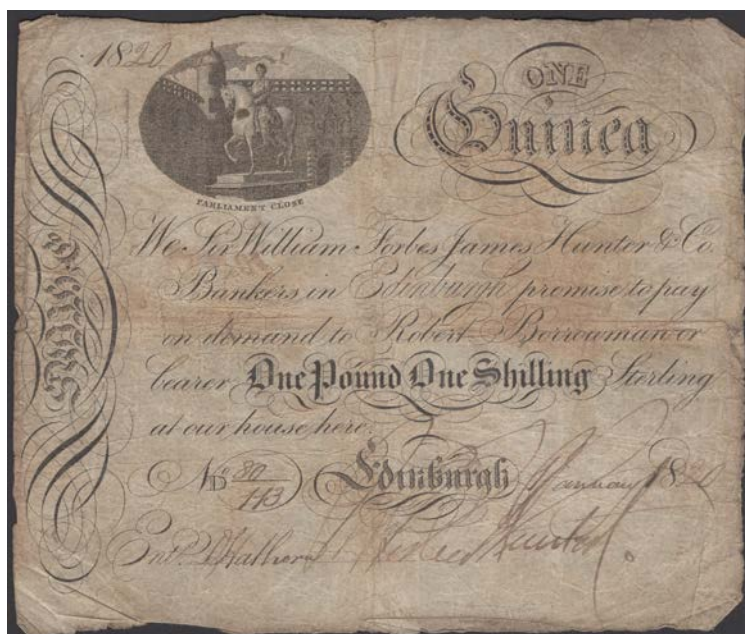 1820
ONE
Guinea
PARLIAMENT CLOSE
We Sir William Forbes James Hunter & Co.
Bankers in Edinburgh promise to pay
on demand to Robert Borrowman or
bearer One Pound One Shilling Sterling
at our house here.
No 80/113 Edinburgh January 1820
Entd.
Hunter